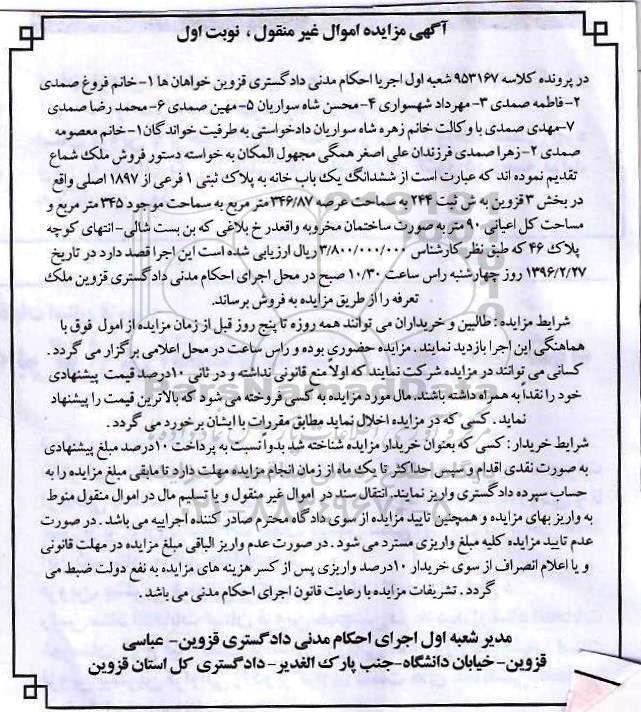 آگهی مزایده اموال غیر منقول ، نوبت اول
در پرونده کلاسه ۹۵۳۱۶۷ شعبه اول اجریا احکام مدنی دادگستری قزوین خواهان ها ۱-خانم فروغ صمدی
۲-فاطمه صمدی ۳-مهرداد شهسواری ۴-محسن شاه سواریان ۵-مهین صمدی ۶-محمد رضا صمدی
۷-مهدی صمدی با وکالت خانم زهره شاه سواریان دادخواستی به طرفیت خواندگان۱-خانم معصومه
صمدی ۲-زهرا صمدی فرزندان علی اصغر همگی مجهول المکان به خواسته دستور فروش ملک شماع
تقدیم نموده اند که عبارت است از ششدانگ یک باب خانه به پلاک ثبتی ۱ فرعی از ۱۸۹۷ اصلی واقع
در بخش ۳ قزوین به ش ثبت ۲۴۴ به سماحت عرصه ۳۴۶/۸۷ متر مربع به سماحت موجود ۳۴۵ متر مربع و
مساحت کل اعیانی ۹۰ متر به صورت ساختمان مخروبه واقعدر خ بلاغی که بن بست شالی-انتهای کوچه
پلاک ۴۶ که طبق نظر کارشناس ۳/۸۰۰/۰۰۰/۰۰۰ ریال ارزیابی شده است این اجرا قصد دارد در تاریخ
۱۳۹۶/۲/۲۷ روز چهارشنبه راس ساعت ۱۰/۳۰ صبح در محل اجرای احکام مدنی دادگستری قزوین ملک
تعرفه را از طریق مزایده به فروش برساند.
شرایط مزایده : طالبین و خریداران می توانند همه روزه تا پنج روز قبل از زمان مزایده از امول فوق با
هماهنگی این اجرا بازدید نمایند. مزایده حضوری بوده و راس ساعت در محل اعلامی برگزار می گردد .
کسانی می توانند در مزایده شرکت نمایند که اولاً منع قانونی نداشته و در ثانی ۱۰درصد قیمت پیشنهادی
خود را نقداً به همراه داشته باشند. مال مورد مزایده به کسی فروخته می شود که بالاترین قیمت را پیشنهاد
نماید . کسی که در مزایده اخلال نماید مطابق مقررات با ایشان برخورد می گردد .
شرایط خریدار : کسی که بعنوان خریدار مزایده شناخته شد بدواً نسبت به پرداخت ۱۰درصد مبلغ پیشنهادی
به صورت نقدی اقدام و سپس حداکثر تا یک ماه از زمان انجام مزایده مهلت دارد تا مابقی مبلغ مزایده را به
حساب سپرده دادگستری واریز نمایند. انتقال سند در اموال غیر منقول و یا تسلیم مال در اموال منقول منوط
به واریز بهای مزایده و همچنین تایید مزایده از سوی دادگاه محترم صادر کننده اجراییه می باشد . در صورت
عدم تایید مزایده کلیه مبلغ واریزی مسترد می شود . در صورت عدم واریز الباقی مبلغ مزایده در مهلت قانونی
و یا اعلام انصراف از سوی خریدار ۱۰درصد واریزی پس از کسر هزینه های مزایده به نفع دولت ضبط می
گردد . تشریفات مزایده با رعایت قانون اجرای احکام مدنی می باشد .
مدیر شعبه اول اجرای احکام مدنی دادگستری قزوین- عباسی
قزوین-خیابان دانشگاه-جنب پارک الغدیر-دادگستری کل استان قزوین
ParsNamadData